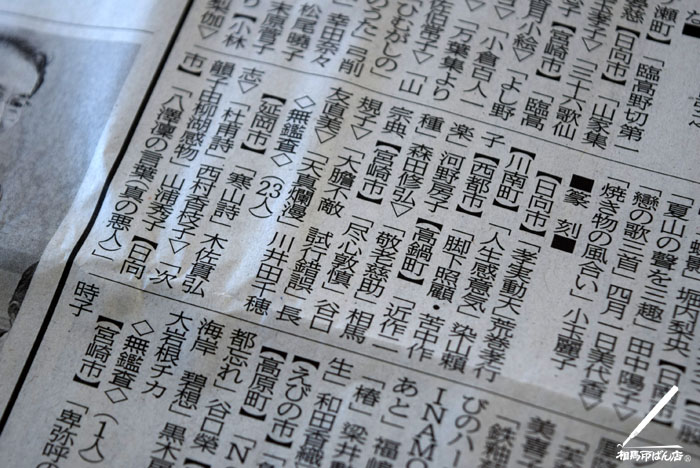 瀬町】「臨高野切第一
【日向市】「山家集
子▽「三十六歌仙
【宮崎市】「臨高
育月小絵▽「よし野
「小倉百人一
▽「万葉集より
佐伯啓子▽「山
「ひむがしの
のうた」弓削
幸田奈々
松尾曉子
末原菅子
【小林
「夏山の聲を三趣」田中陽子▽
戀の歌三首」四月一日美代香▽
焼き物の風合い」小玉麗子
■篆刻■
【日向市】「孝実動天」荒巻孝行
【川南町】「人生感意気」染山頼
子【西都市】「脚下照顧・苦中作
楽」河野房子【高鍋町】「近作二
種」森田修弘▽「敬老慈助」相馬
宗典【宮崎市】「尽心敦慎」谷口
規子▽「大膽不敵 試行錯誤」長
友直美▽「天真爛漫」川井田千穂
◇無鑑査◇(23人)
【延岡市】「寒山詩」木佐貫弘
志▽「杜甫詩」西村香枝子▽「次
韻于由柳湖感物」山浦秀子【日向
市】「八澤凜の言葉(真の悪人)」
「鉄軸
びのハー
INAM
あと」福
「椿」梁井
生」和田香織
【えびの市】
【高原町】「N
都忘れ」谷口榮
海岸 碧想」黒木
大岩根チカ
◇無鑑査◇(1人)
【宮崎市】「卑弥呼の
時子
相馬印ばん店®